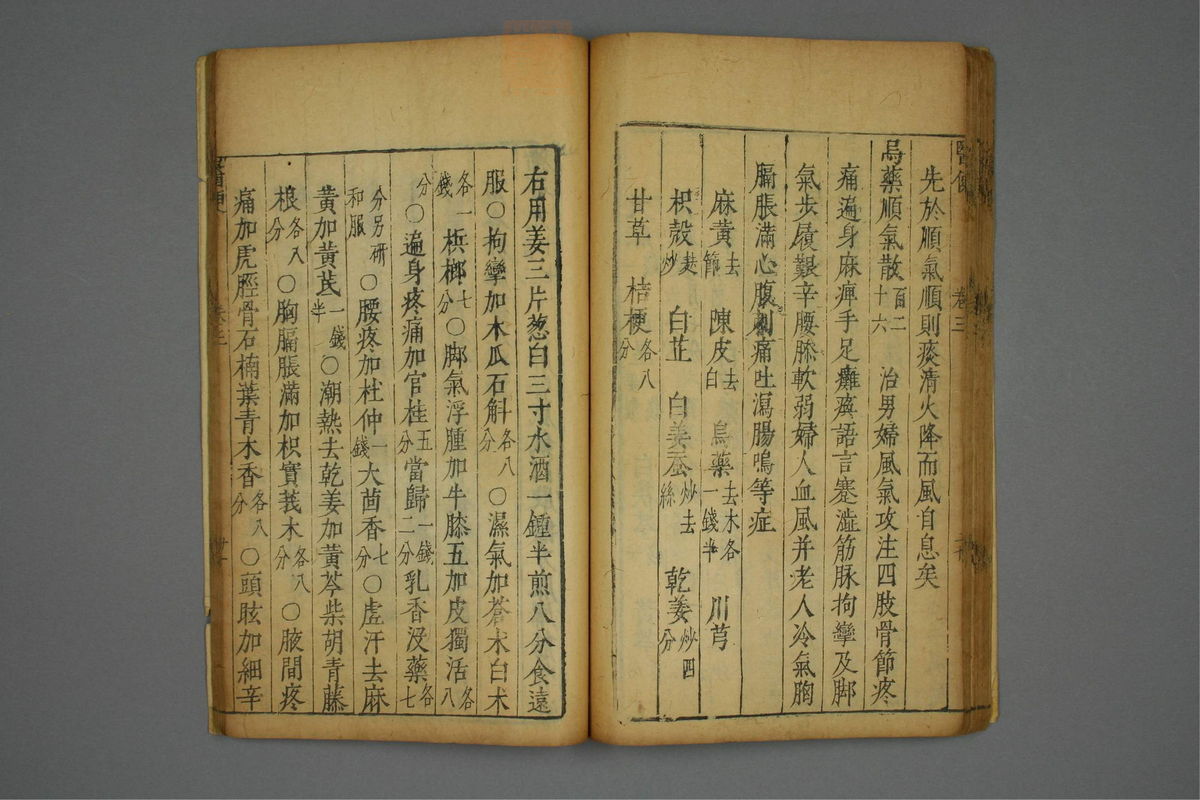 先於順氣順則痰清火降而風自息矣
烏藥順氣散百二十六 治男婦風氣攻注四肢骨節疼
痛遍身麻痺手足癱瘓語言蹇澁筋脉拘攣及脚
氣步履艱辛腰膝軟弱婦人血風并老人冷氣胸
膈脹滿心腹刺痛吐瀉腸鳴等症
麻黄去節 陳皮去白 烏藥去木各一錢半 川芎
枳殼麸炒 白芷 白姜蚕炒去絲 乾姜炒四分
甘草 桔梗各八分
醫便 卷三
右用姜三片葱白三寸水酒一鍾半煎八分食遠
服〇拘攣加木瓜石斛各八分 〇濕氣加蒼朮白朮
各一錢梹榔七分〇脚氣浮腫加牛膝五加皮獨活各八
分〇遍身疼痛加官桂五分當歸一錢二分乳香没藥各七
分另研和服 〇腰疼加杜仲一錢大茴香七分〇虛汗去麻
黄加黄芪一錢半〇潮熱去乾姜加黄芩柴胡青藤
根各八分 〇胸膈脹滿加枳實莪朮各八分 〇腋間疼
痛加虎脛骨石楠葉青木香各八分 〇頭眩加細辛
醫便 卷三